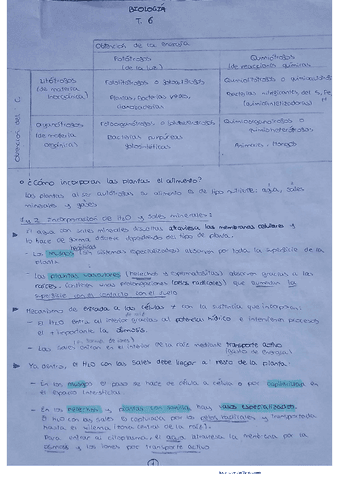 BIOLOGÍA
T. 6
Obtención de la energía
Fotótrofos (de la luz)
Quimiótrofos (de reacciones químicas)
Obtención del C
Litótrofos (de materia inorgánica)
Fotolitótrofos o fotoautótrofos
Plantas, bacterias verdes, cianobacterias
Quimiolitótrofos o quimioautótrofos
Bacterias nitrificantes del S, Fe (quimiosintetizadoras)
Organótrofos (de materia orgánica)
Fotoorganótrofos o fotoheterótrofos
Bacterias purpúreas fotosintéticas
Quimioorganótrofos o quimioheterótrofos
Animales y Hongos
¿Cómo incorporan las plantas el alimento?
Las plantas al ser autótrofas su alimento es de tipo nutrientes: agua, sales
minerales y gases
Incorporación de H2O y sales minerales
El agua con sales minerales disueltas atraviesa las membranas celulares y
lo hace de forma distinta dependiendo del tipo de planta:
- Los musgos (sin sistemas especializados) absorben por toda la superficie de la
planta
- Las plantas vasculares (helechos y espermatofitas) absorben gracias a las
raíces. Contienen unas prolongaciones (pelos radicales) que aumentan la
superficie con el contacto con el suelo
Mecanismo de entrada a las células
- El H2O entra su interior gracias al potencial hídrico e intervienen procesos
el + importante la ósmosis.
- Las sales entran en el interior de la raíz mediante transporte activo
(gasto de energía)
Ya dentro, el H2O con las sales debe llegar a resto de la planta:
- En los musgos el paso se hace de célula a célula o por capilaridad en
el espacio intersticial
- En los helechos y plantas con semilla hay vasos especializados
El H2O con las sales es capturada por los pelos radicales y transportada
hasta el xilema (zona central de la raíz).
Para entrar al citoplasma, el agua atraviesa la membrana por la
ósmosis y los iones por transporte activo
1